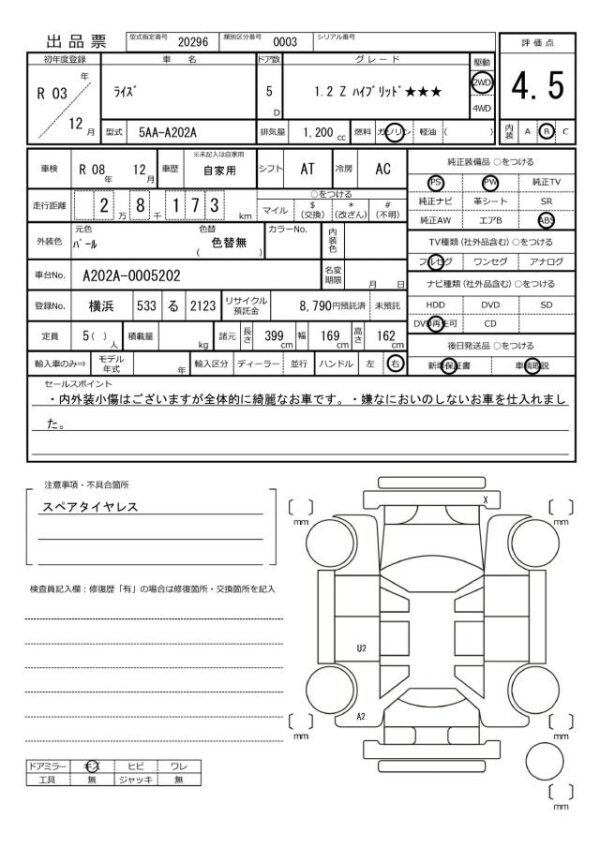 出品票 型式指定番号 20296 類別区分番号 0003 シリアル番号
評価点
初年度登録 車名 ドア数 グレード 駆動
R 03 年 ライズ 5 D 1.2 Z ハイブリッド★★★ 2WD 4.5
12 月 4WD
型式 5AA-A202A 排気量 1,200 cc 燃料 ガソリン 軽油 ( ) 内装 A B C
車検 R 08 年 12 月 車歴 ※未記入は自家用 自家用 シフト AT 冷房 AC
純正装備品 ○をつける
PS PW 純正TV
純正ナビ 革シート SR
純正AW エアB ABS
走行距離 2 万 8 千 1 7 3 km
○をつける
マイル $(交換) *(改ざん) #(不明)
外装色 元色 パール 色替 色替無 ( ) カラーNo. 内装色
TV種類 (社外品含む) ○をつける
フルセグ ワンセグ アナログ
車台No. A202A-0005202 名変期限 月 日
ナビ種類 (社外品含む) ○をつける
HDD DVD SD
DVD再生可 CD
登録No. 横浜 533 る 2123 リサイクル預託金 8,790円預託済 未預託
定員 5( ) 人 積載量 kg 諸元 長さ 399 cm 幅 169 cm 高さ 162 cm
後日発送品 ○をつける
新車保証書 車輌取説
輸入車のみ⇒ モデル年式 年 輸入区分 ディーラー 並行 ハンドル 左 右
セールスポイント
・内外装小傷はございますが全体的に綺麗なお車です。・嫌なにおいのしないお車を仕入れまし
た。
注意事項・不具合箇所
スペアタイヤレス
検査員記入欄：修復歴「有」の場合は修復箇所・交換箇所を記入
X
[ ] mm
[ ] mm
U2
A2
[ ] mm
[ ] mm
[ ] mm
ドアミラー キズ ヒビ ワレ
工具 無 ジャッキ 無